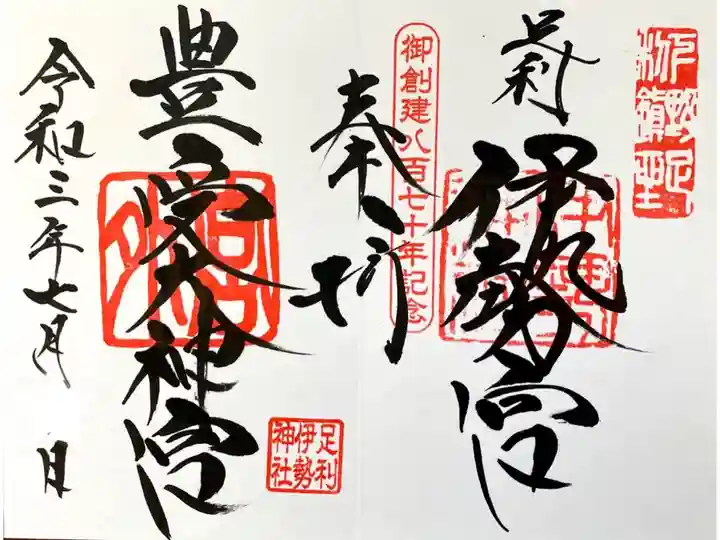 足利
伊勢宮
御創建八百七十年記念
奉拝
豊受大神宮
足利
伊勢
神社
令和三年七月 日